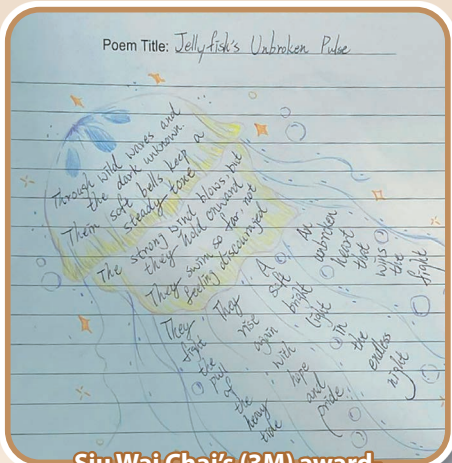 Poem Title: Jellyfish's Unbroken Pulse
Through wild waves and
the dark unknown.
Their soft bells keep a
steady tone
The strong wind blows, but
they hold onward
They swim so far, not
feeling discouraged
They fight the pull of the heavy tide
They rise again with hope and pride
A soft bright light in the endless night
An unbroken heart that wins the fight
Siu Wai Chai's (3M) award